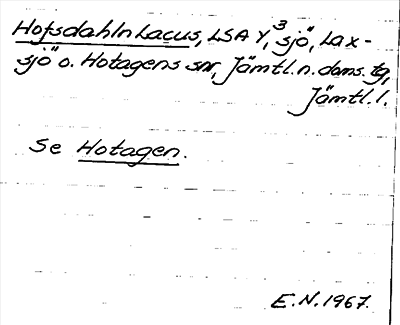 Hofsdahln Lacus, LSA Y,³ sjö, Lax-
sjö o. Hotagens snr, Jämtl. n. doms. tg,
Jämtl. l.
Se Hotagen.
E.N. 1967.